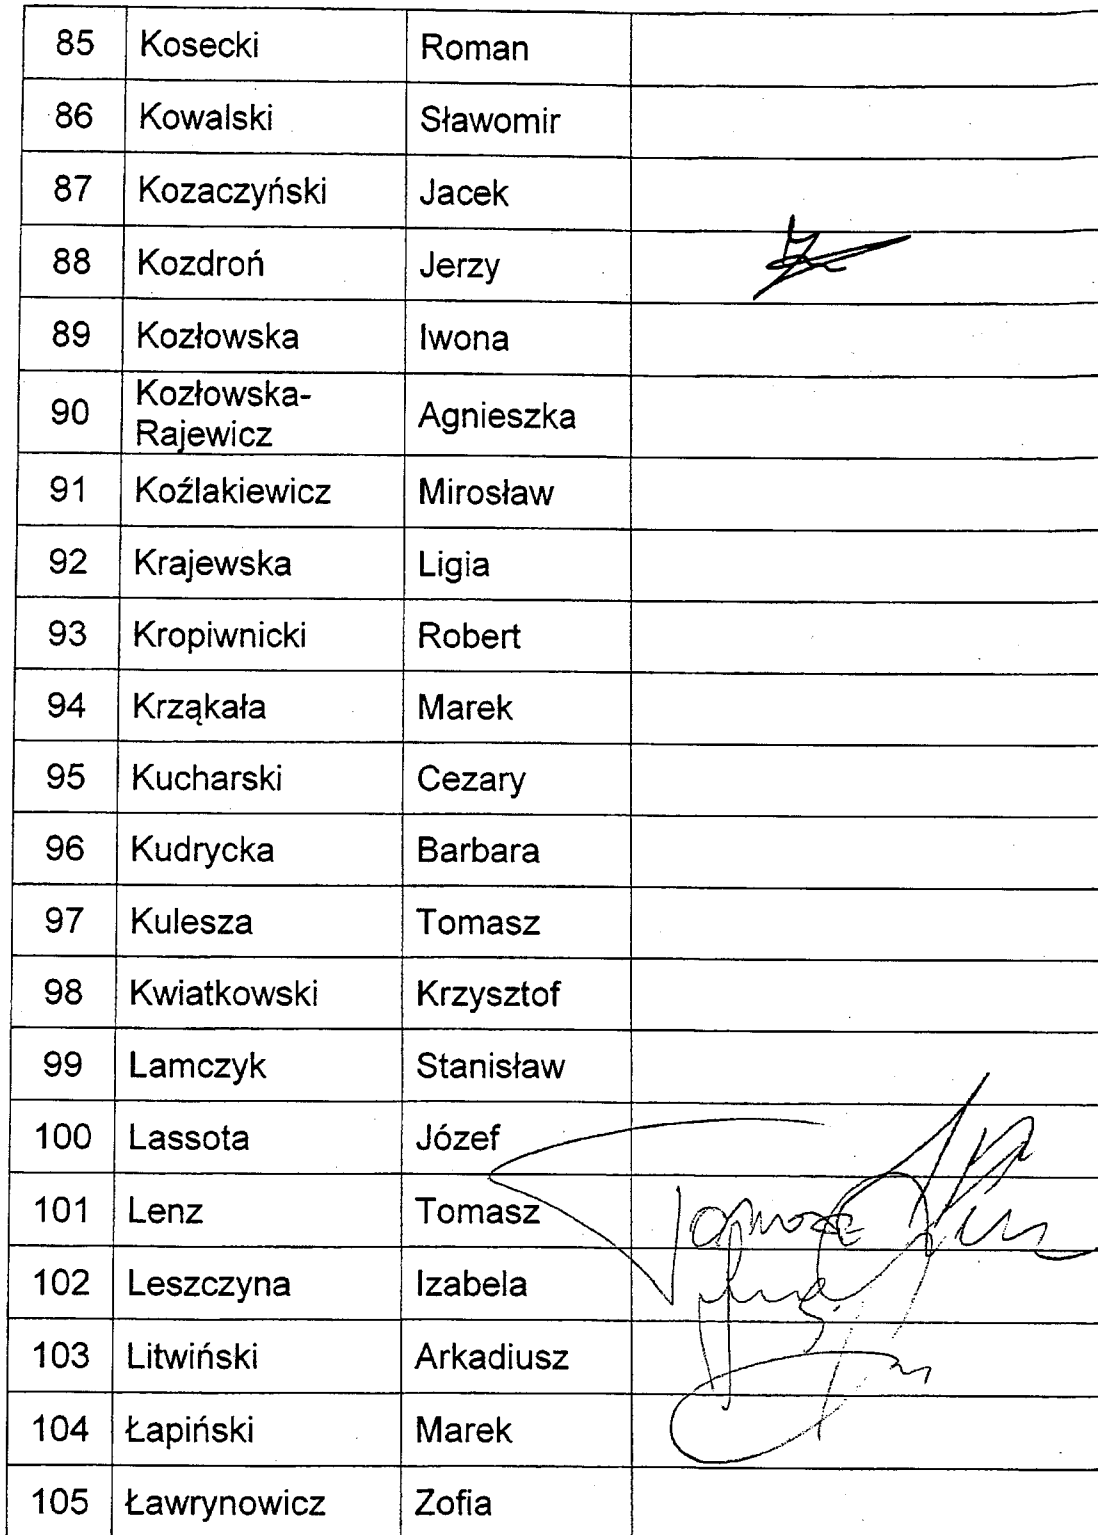 85 Kosecki Roman
86 Kowalski Sławomir
87 Kozaczyński Jacek
88 Kozdroń Jerzy
89 Kozłowska Iwona
90 Kozłowska-
Rajewicz Agnieszka
91 Koźlakiewicz Mirosław
92 Krajewska Ligia
93 Kropiwnicki Robert
94 Krząkała Marek
95 Kucharski Cezary
96 Kudrycka Barbara
97 Kulesza Tomasz
98 Kwiatkowski Krzysztof
99 Lamczyk Stanisław
100 Lassota Józef
101 Lenz Tomasz Tomasz
102 Leszczyna Izabela
103 Litwiński Arkadiusz
104 Łapiński Marek
105 Ławrynowicz Zofia